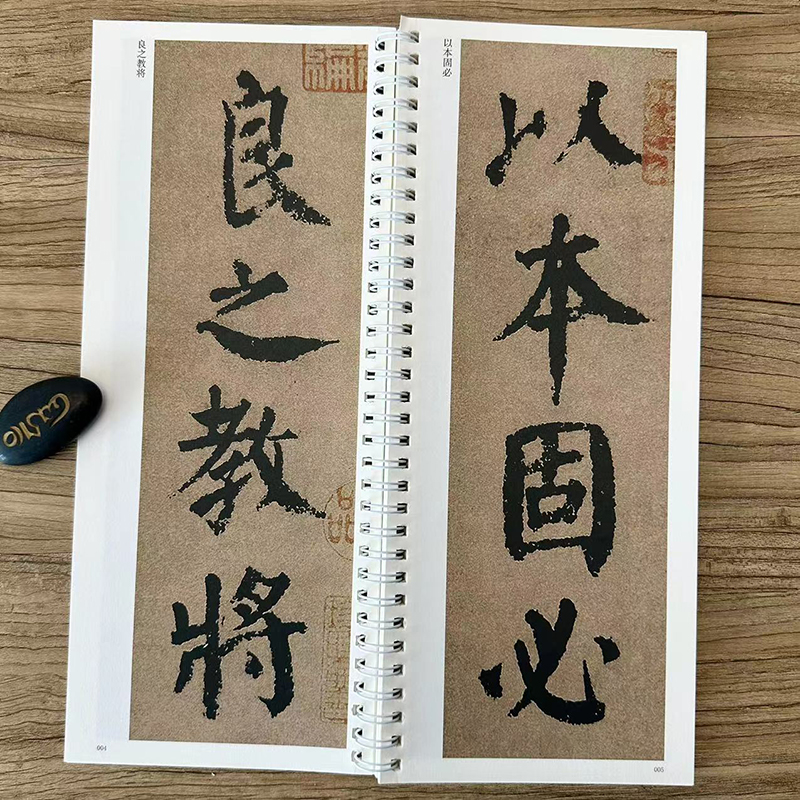 以本固必
以本固必
005
良之教将
良之教將
004